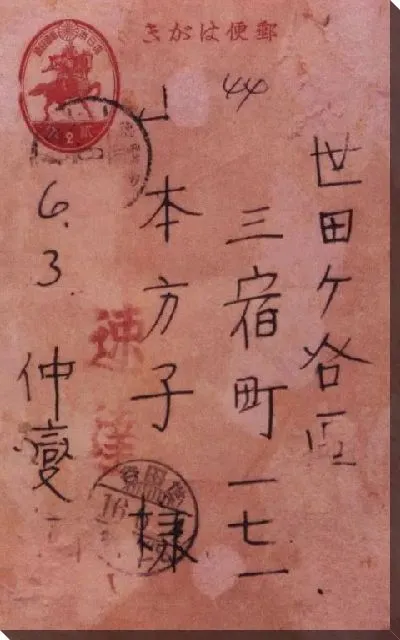 郵便はがき
世田ケ谷區
三宿町一七一
山本方子様
速達
6.3.
仲燮